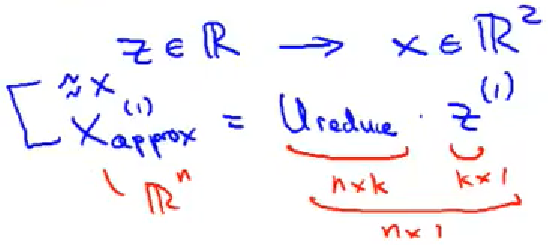 z ∈ ℝ → x ∈ ℝ²
≈ x
x_approx^(1) = U_reduce · z^(1)
ℝⁿ n×k k×1
n×1